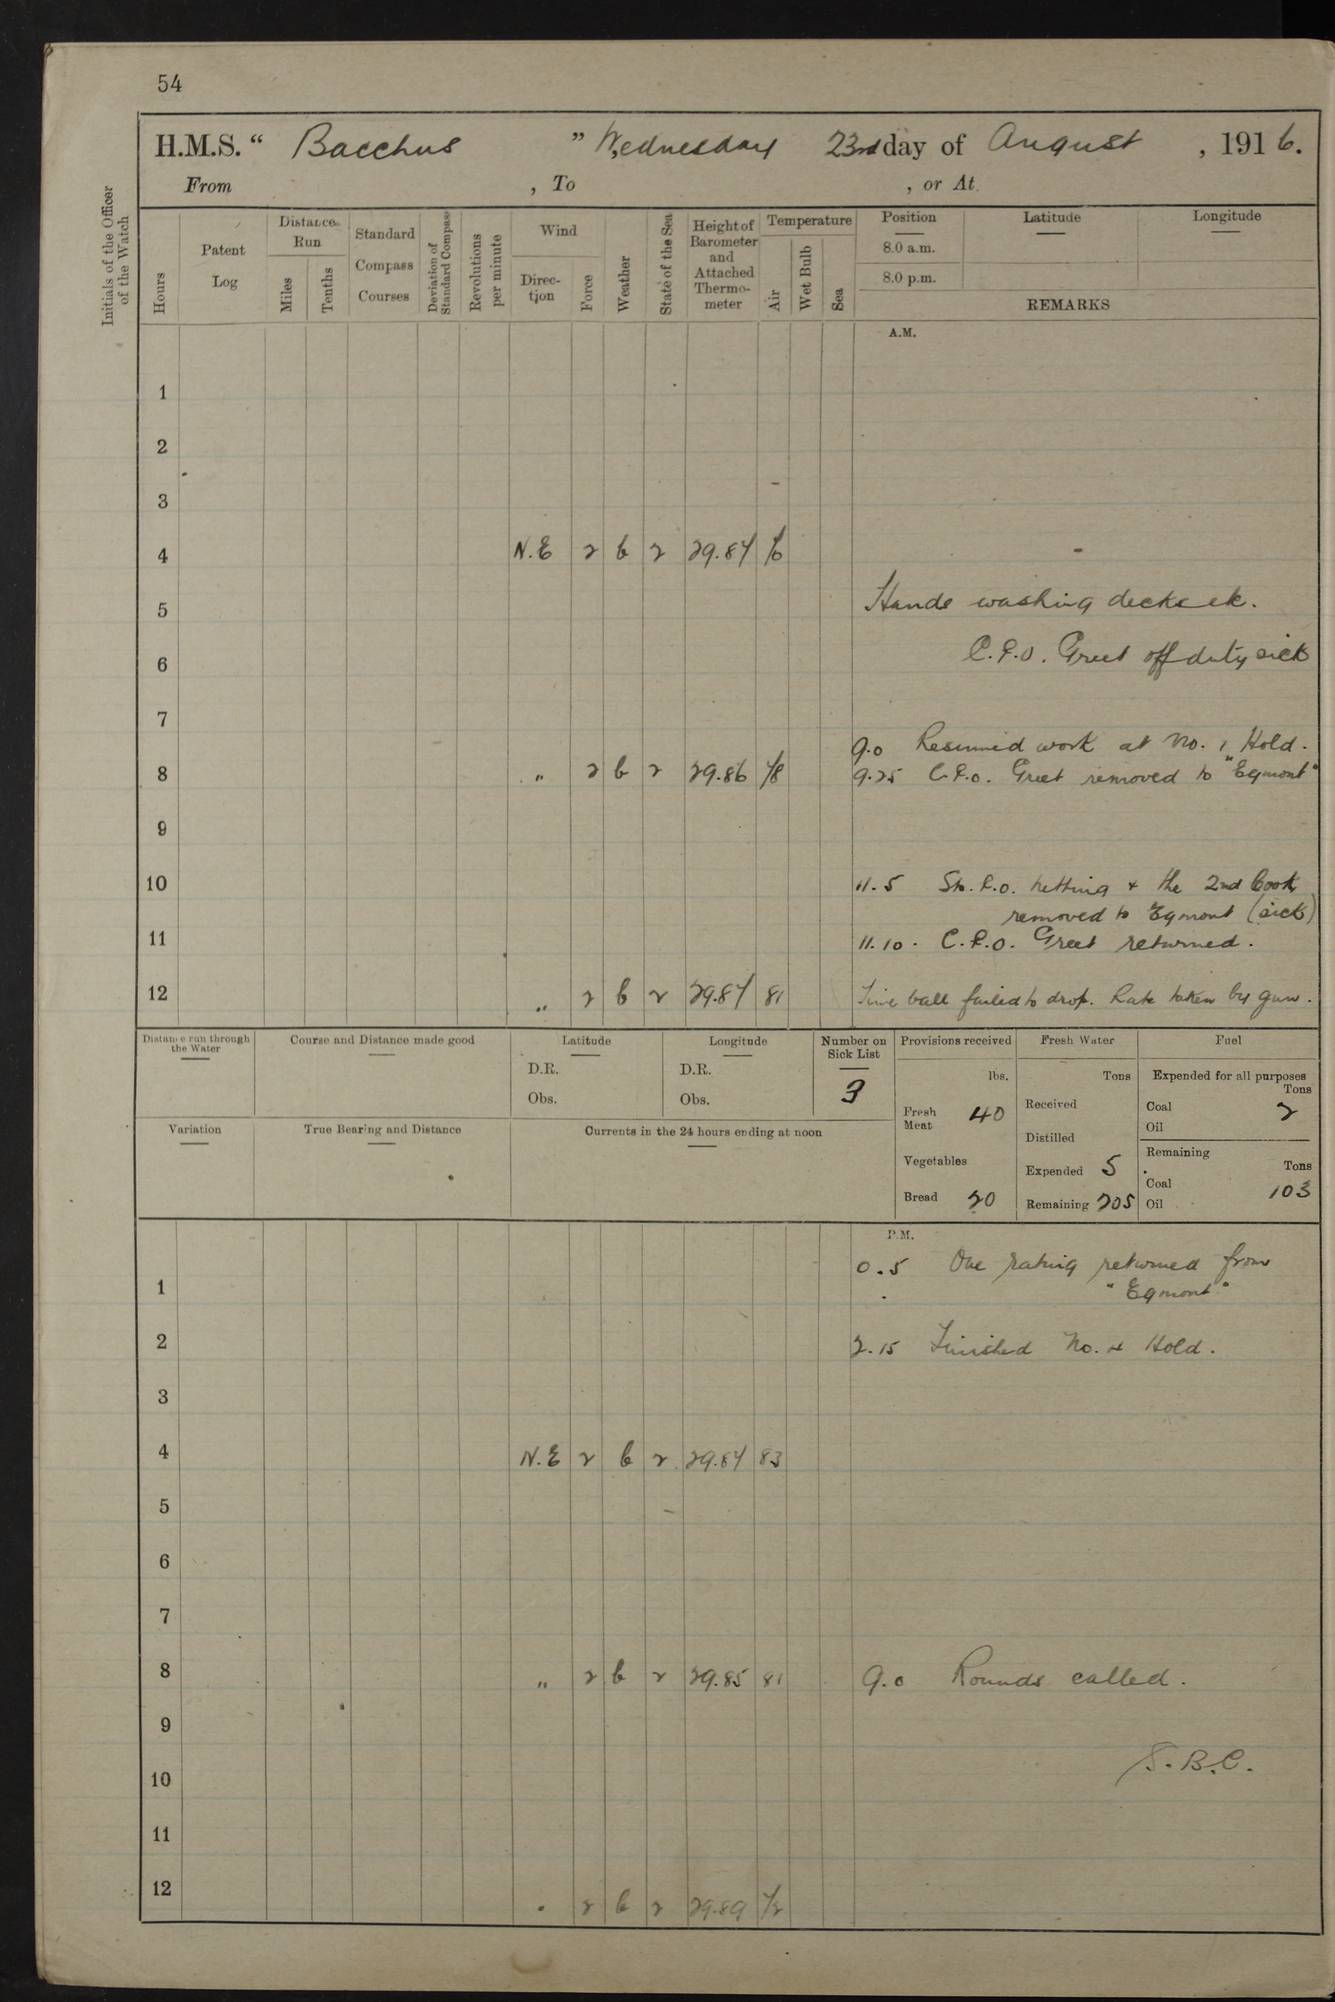 54
H.M.S. " Bacchus " Wednesday 23rd day of August , 1916.
From , To , or At
Initials of the Officer of the Watch
Hours
Patent Log
Distance Run
Miles
Tenths
Standard Compass Courses
Deviation of Standard Compass
Revolutions per minute
Wind
Direction
Force
Weather
State of the Sea
Height of Barometer and Attached Thermometer
Temperature
Air
Wet Bulb
Sea
Position Latitude Longitude
8.0 a.m.
8.0 p.m.
REMARKS
A.M.
1
2
3
4 N.E 2 b 2 29.87 76
5 Hands washing decks etc.
6 C.P.O. Greet off duty sick
7
9.0 Resumed work at No. 1 Hold.
8 " 2 b 2 29.86 78 9.25 C.P.O. Greet removed to "Egmont"
9
10 11.5 St. P.O. & the 2nd Cook
removed to Egmont (sick)
11 11.10. C.P.O. Greet returned.
12 " 2 b 2 29.87 81 Time ball failed to drop. Rate taken by gun.
Distance run through the Water
Course and Distance made good
Latitude
D.R.
Obs.
Longitude
D.R.
Obs.
Number on Sick List
3
Provisions received
lbs.
Fresh Meat 40
Vegetables
Bread 20
Fresh Water
Tons
Received
Distilled
Expended 5
Remaining 205
Fuel
Expended for all purposes
Tons
Coal 2
Oil
Remaining
Tons
Coal 103
Oil
Variation
True Bearing and Distance
Currents in the 24 hours ending at noon
P.M.
0.5 One rating returned from
1 "Egmont"
2 2.15 Finished No. Hold.
3
4 N.E 2 b 2 29.87 83
5
6
7
8 " 2 b 2 29.85 81 9.0 Rounds called.
9
S.B.C.
10
11
12 " 2 b 2 29.89